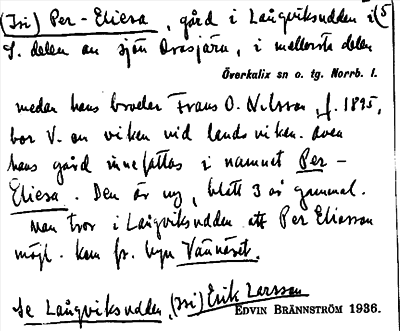 (Isi) Per-Eliesa, gård i Långviksudden i (5
S. delen av sjön Orasjärv, i mellersta delen
Överkalix sn o. tg. Norrb. l.
medan hans broder Frans O. Nilsson, f. 1895,
bor V. om viken vid landsviken. Även
hans gård innefattas i namnet Per-
Eliesa. Den är ny, blott 3 år gammal.
Man tror i Långviksudden att Per Eliasson
möjl. kom fr. byn Vännäset.
Se Långviksudden, (Isi) Erik Larsson
EDVIN BRÄNNSTRÖM 1936.